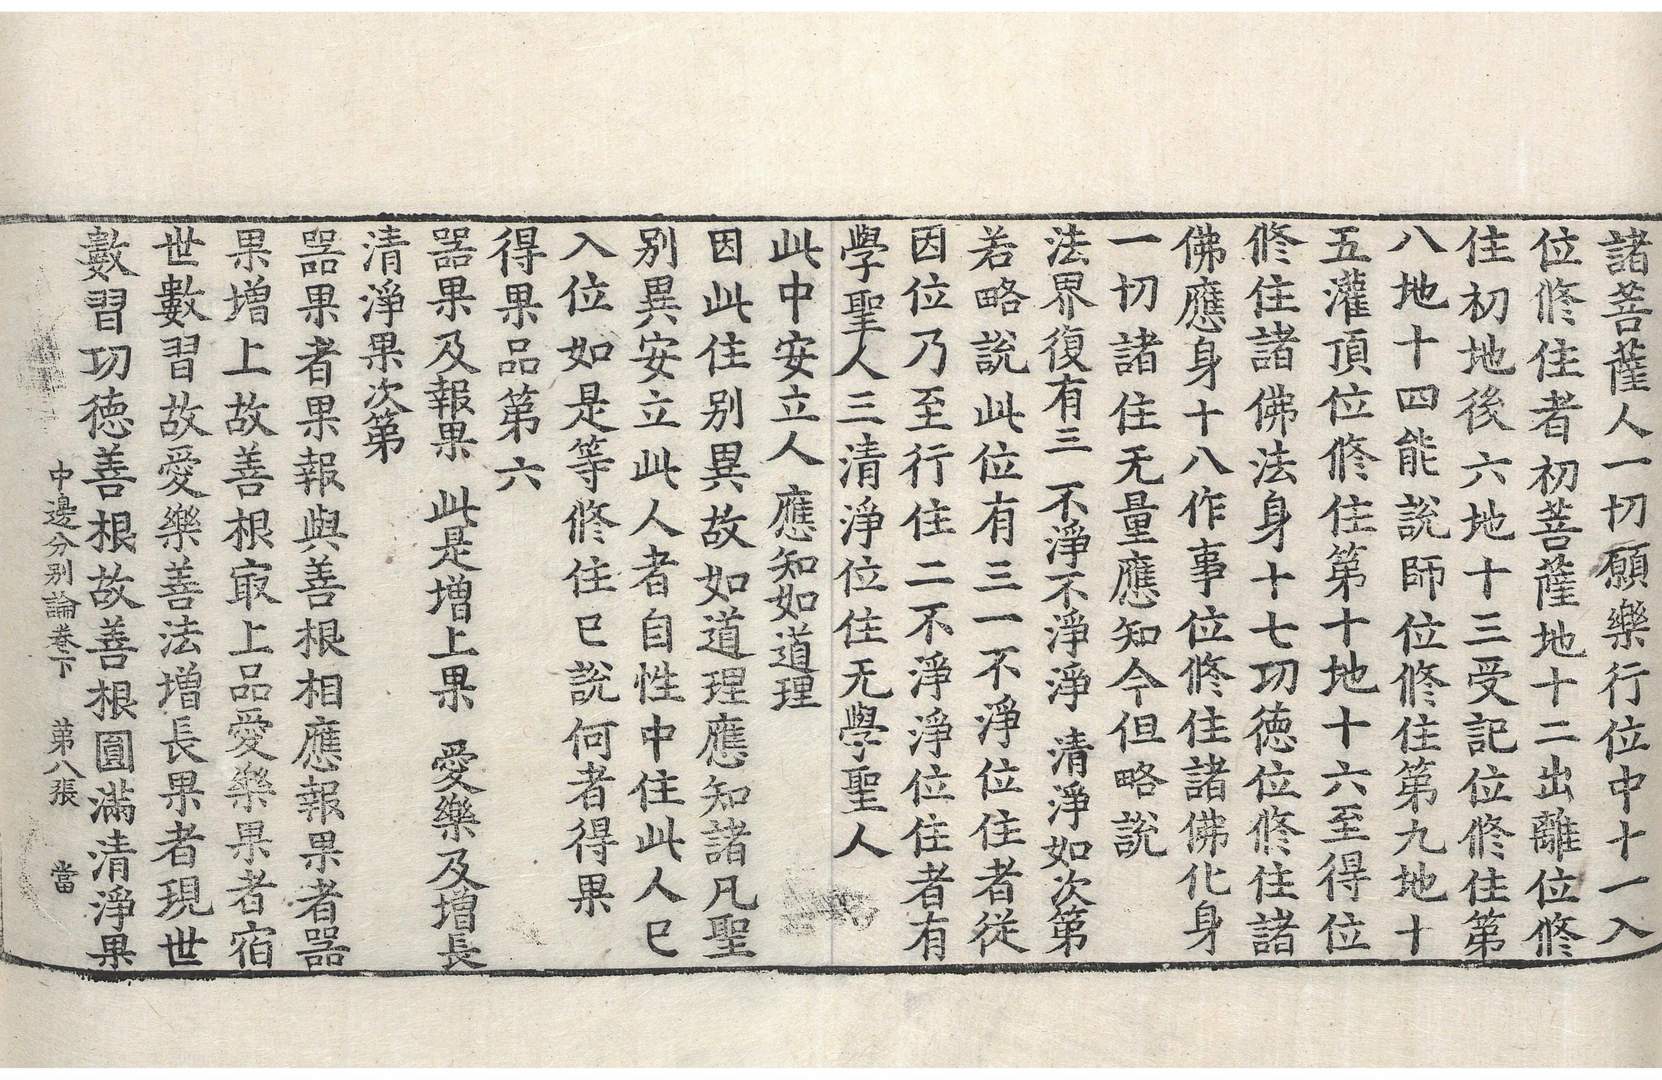 諸菩薩人一切願樂行位中十一入
位修住者初菩薩地十二出離位修
住初地後六地十三受記位修住第
八地十四能說師位修住第九地十
五灌頂位修住第十地十六至得位
修住諸佛法身十七功德位修住諸
佛應身十八作事位修住諸佛化身
一切諸住无量應知今但略說
法界復有三 不淨不淨淨 清淨如次第
若略說此位有三一不淨位住者從
因位乃至行住二不淨淨位住者有
學聖人三清淨位住无學聖人
此中安立人 應知如道理
因此住別異故如道理應知諸凡聖
別異安立此人者自性中住此人已
入位如是等修住已說何者得果
得果品第六
器果及報果 此是增上果 愛樂及增長
清淨果次第
器果者果報與善根相應報果者器
果增上故善根㝡上品愛樂果者宿
世數習故愛樂善法增長果者現世
數習功德善根故善根圓滿清淨果
中邊分別論卷下 第八張 當